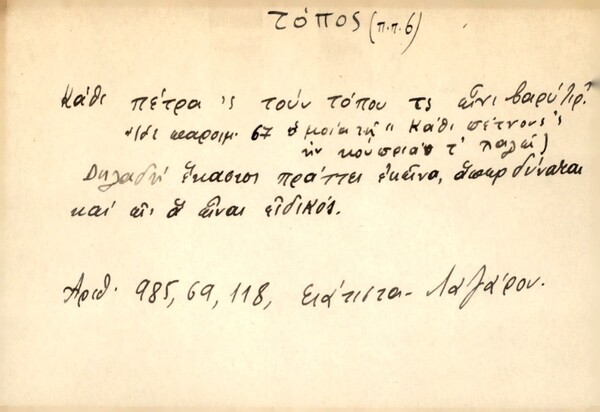 τόπος (π.π.6)
Κάθι πέτρα 'ς τοὺν τόπου τς εἶνι βαρύτιρ'
(ἰδὲ παροιμ. 67 ὁμοία τῇ " Κάθι πέτνους 'ς
τὴν κουπριά τ' λαλεῖ)
Δηλαδὴ ἕκαστος πράττει ἐκεῖνο, ὅπερ δύναται
καὶ εἰς ὃ εἶναι εἰδικός.
Ἀριθ. 985, 69, 118, Σιάτιστα - Λαζάρου.